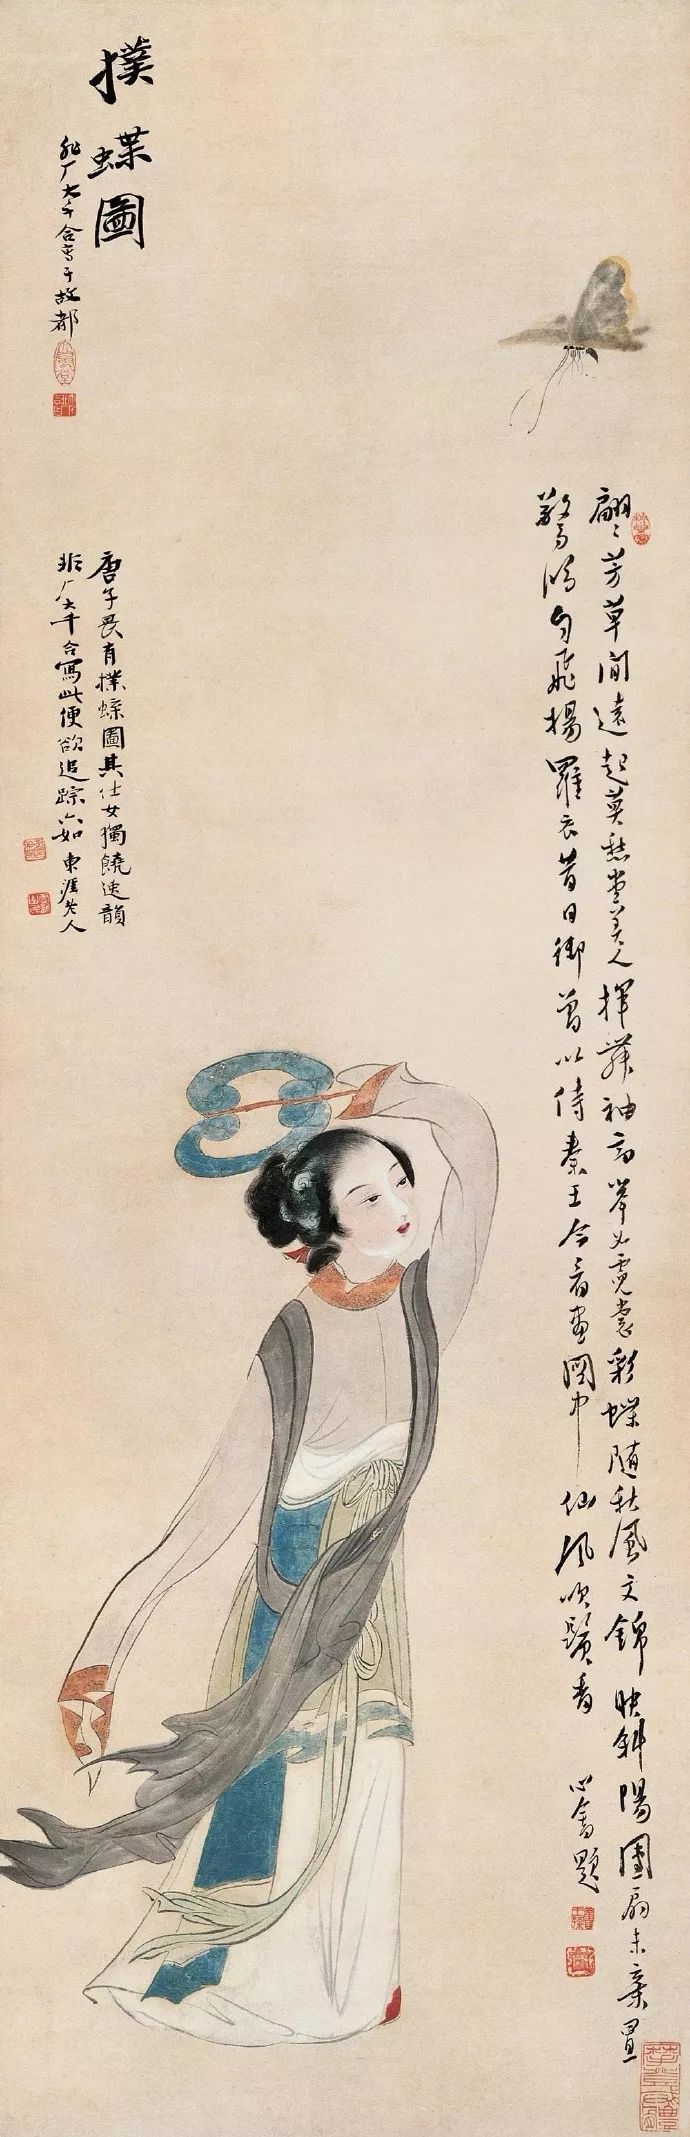 撲蝶圖
非厂大千合寫于故都
唐子畏有撲蝶圖其仕女獨饒逸韻
非厂大千合寫此便欲追踪六如 東涯老人
翩翩芳草間遠起莫愁堂美人揮舞袖高舉如霓裳彩蝶隨秋風文錦映斜陽團扇未棄置
驚鴻勻飛揚羅衣昔日御曾以侍秦王今看畫圖中仙風吹鬢香
心畬題